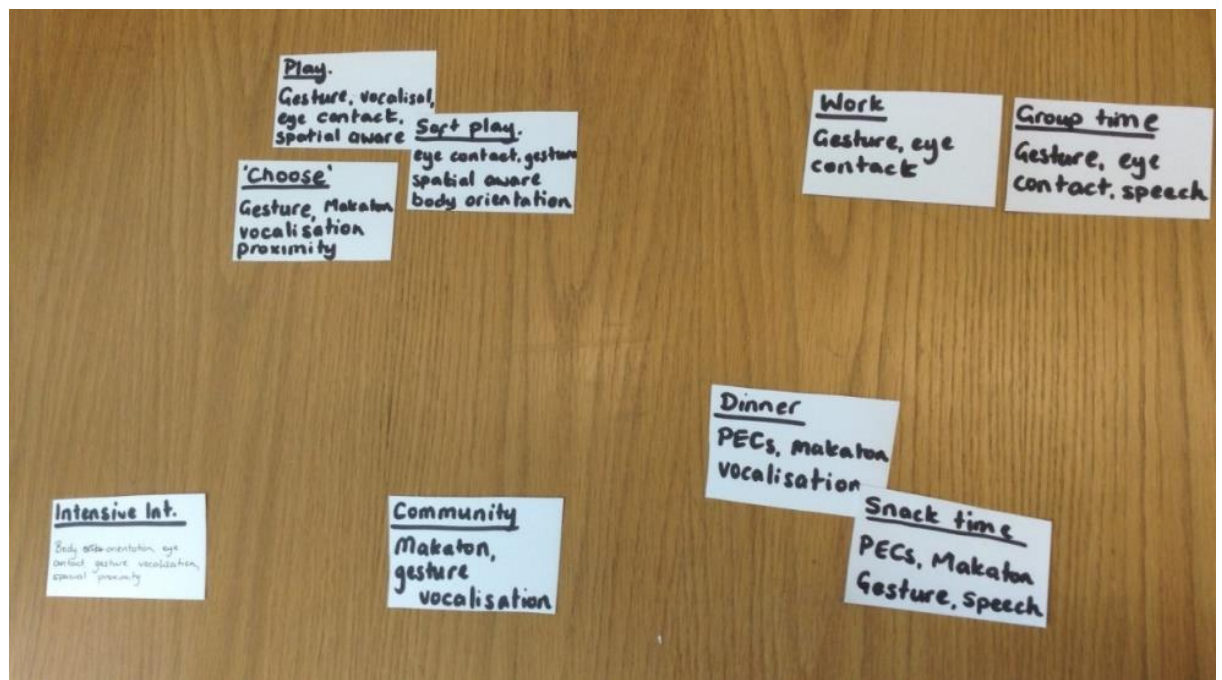 Play.
Gesture, vocalisal,
eye contact.
spatial aware
Soft play.
eye contact, gesture
spatial aware
body orientation
'Choose'
Gesture, Makaton
vocalisation
proximity
Work
Gesture, eye
contact
Group time
Gesture, eye
contact, speech
Dinner
PECs, Makaton
vocalisation
Snack time
PECs, Makaton
Gesture, speech
Intensive Int.
Body orientation, eye
contact gesture vocalisation,
spatial proximity
Community
Makaton,
gesture
vocalisation